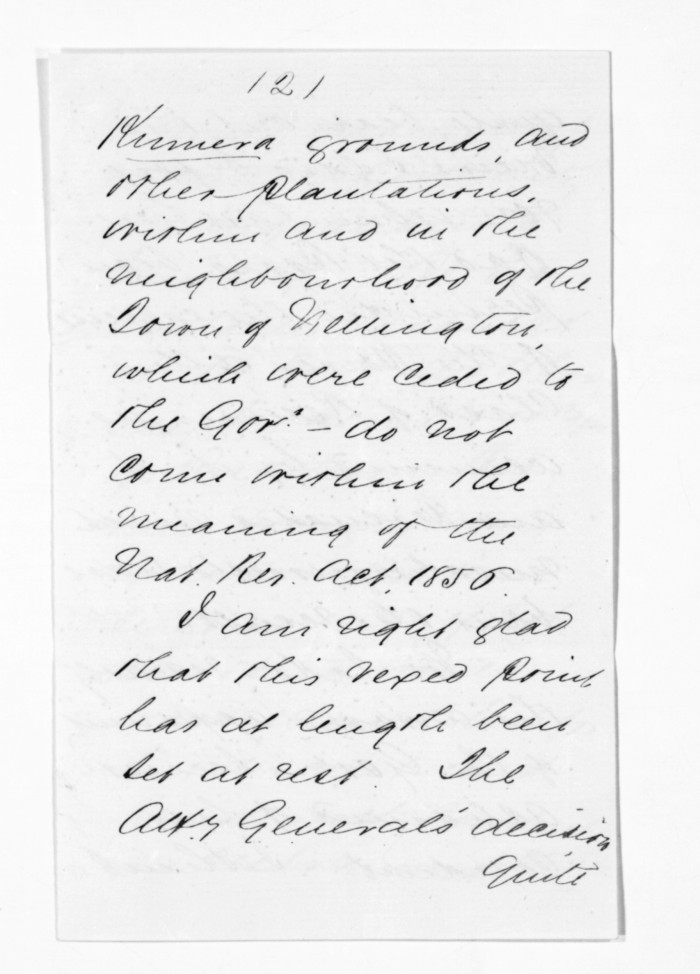 (2)
Kumera grounds, and
other plantations,
within and in the
neighbourhood of the
Town of Wellington,
which were ceded to
the Govt. - do not
come within the
meaning of the
Nat. Res. Act, 1856.
I am right glad
that this vexed point
has at length been
set at rest. The
Atty Generals' decision
quite